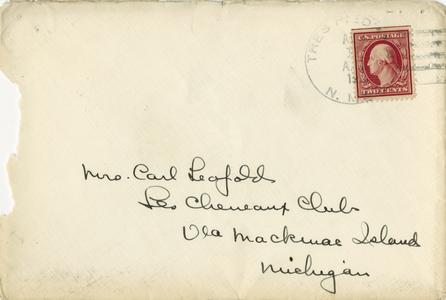 TRES PIEDRAS
N. M.
U.S. POSTAGE
TWO CENTS
Mrs. Carl Leopold
Les Cheneaux Club
Via Mackinac Island
Michigan